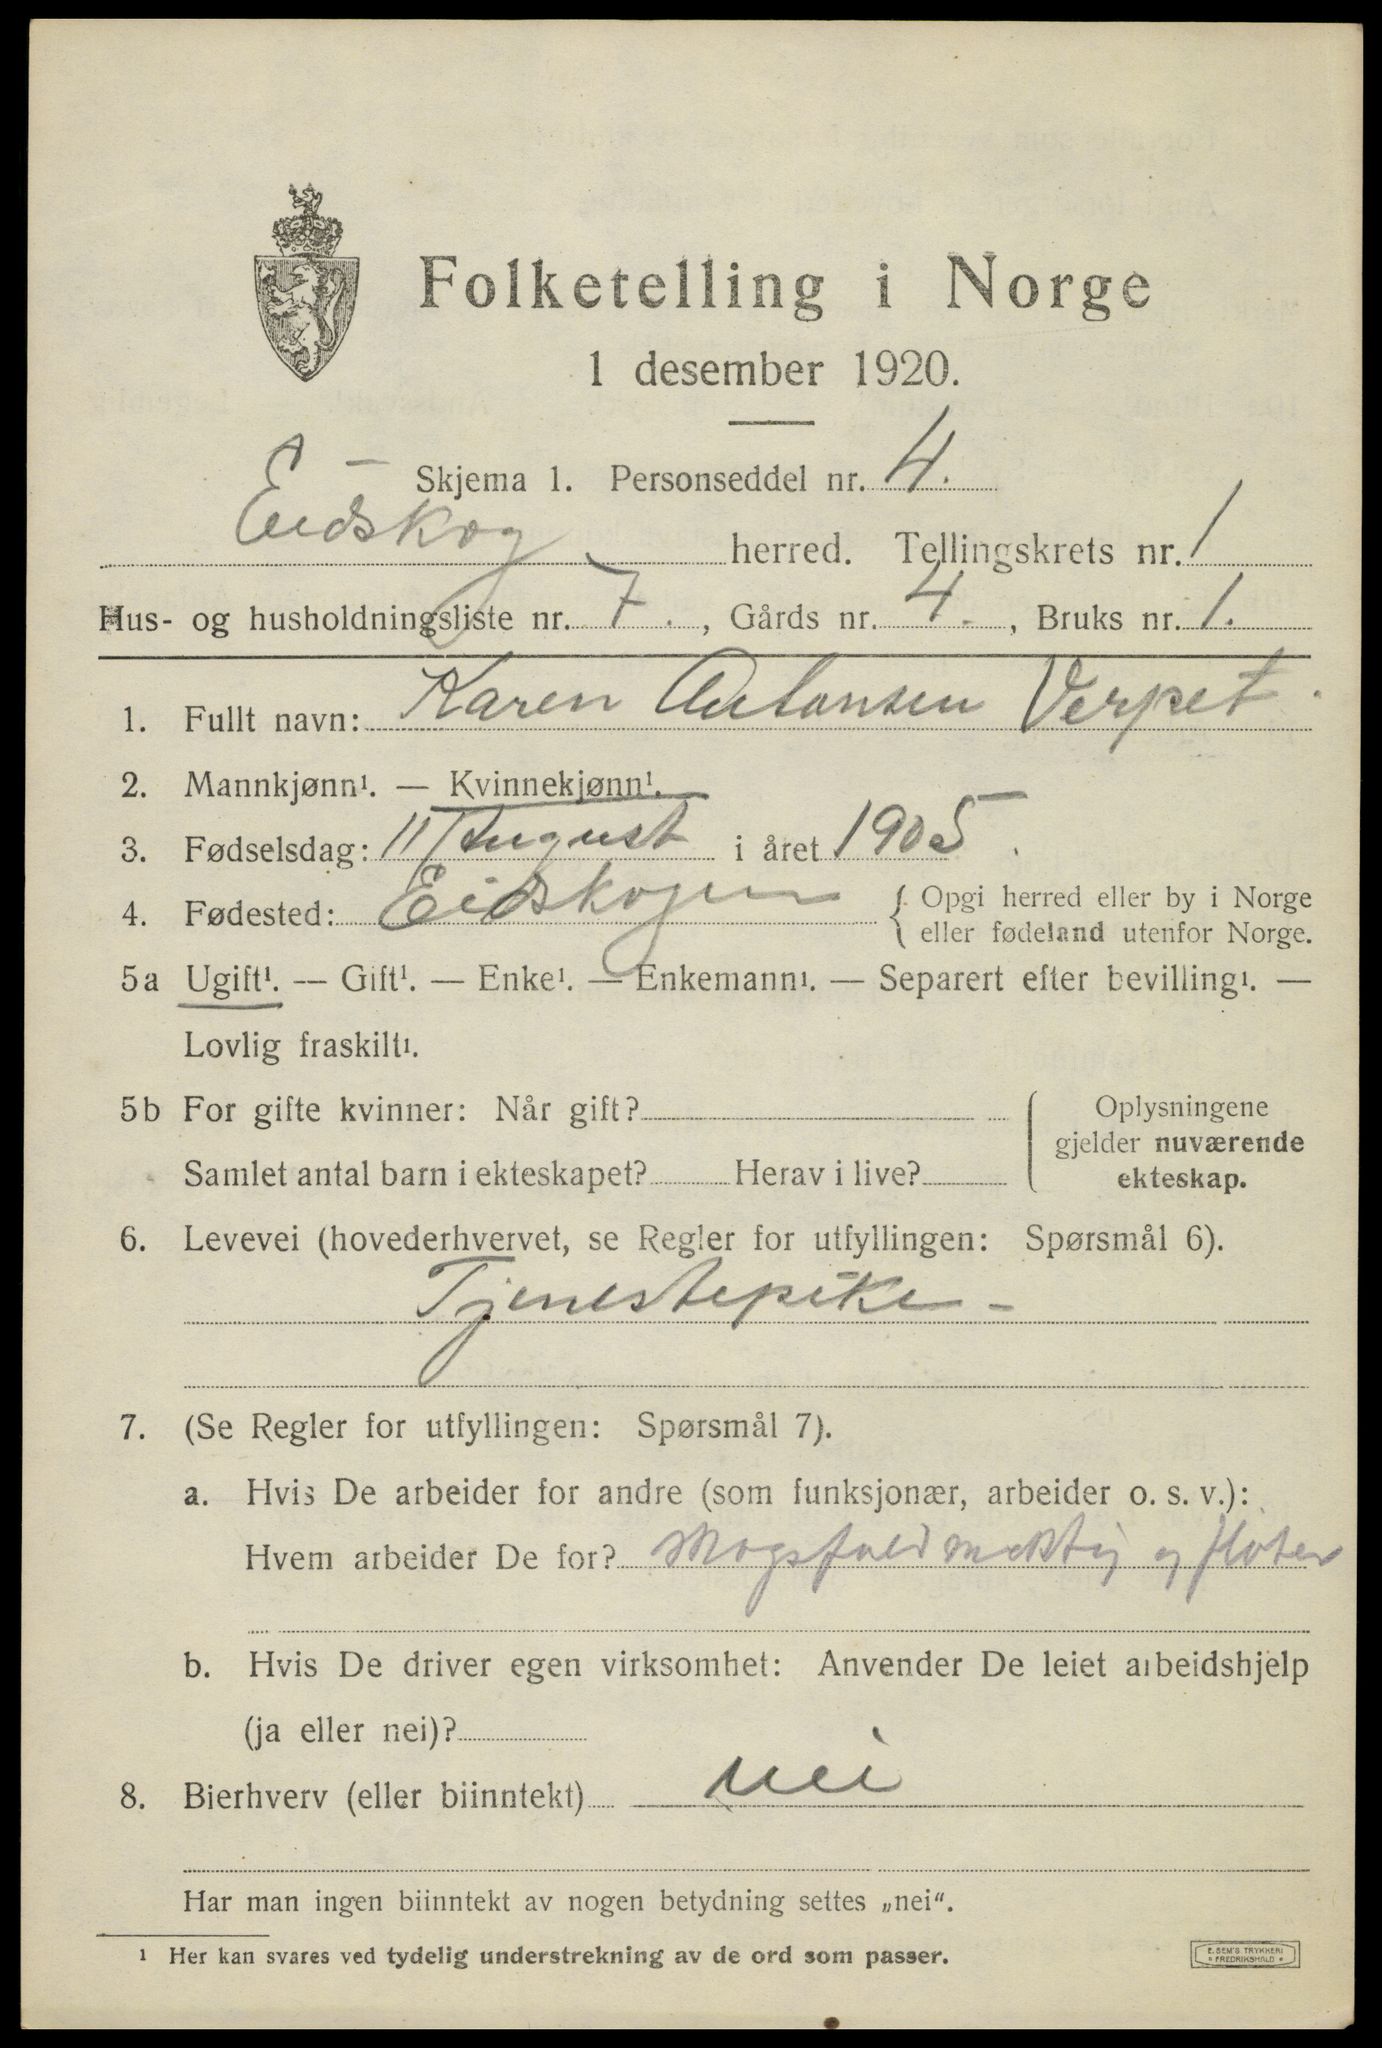 Folketelling i Norge
1 desember 1920.
Skjema 1. Personseddel nr. 4.
Eidskog herred. Tellingskrets nr. 1
Hus- og husholdningsliste nr. 7., Gårds nr. 4., Bruks nr. 1.
1. Fullt navn: Karen Antonsen Verpet.
2. Mannkjønn¹. — Kvinnekjønn¹.
3. Fødselsdag: 11 August i året 1905.
4. Fødested: Eidskogen { Opgi herred eller by i Norge
eller fødeland utenfor Norge.
5a Ugift¹. — Gift¹. — Enke¹. — Enkemann¹. — Separert efter bevilling¹. —
Lovlig fraskilt¹.
5b For gifte kvinner: Når gift?
Samlet antal barn i ekteskapet? Herav i live?
Oplysningene
gjelder nuværende
ekteskap.
6. Levevei (hovederhvervet, se Regler for utfyllingen: Spørsmål 6).
Tjenestepike -
7. (Se Regler for utfyllingen: Spørsmål 7).
a. Hvis De arbeider for andre (som funksjonær, arbeider o. s. v.):
Hvem arbeider De for? og fløter
b. Hvis De driver egen virksomhet: Anvender De leiet arbeidshjelp
(ja eller nei)?
8. Bierhverv (eller biinntekt) nei
Har man ingen biinntekt av nogen betydning settes „nei“.
¹ Her kan svares ved tydelig understrekning av de ord som passer.
E. SEM'S TRYKKERI
* FREDRIKSHALD *